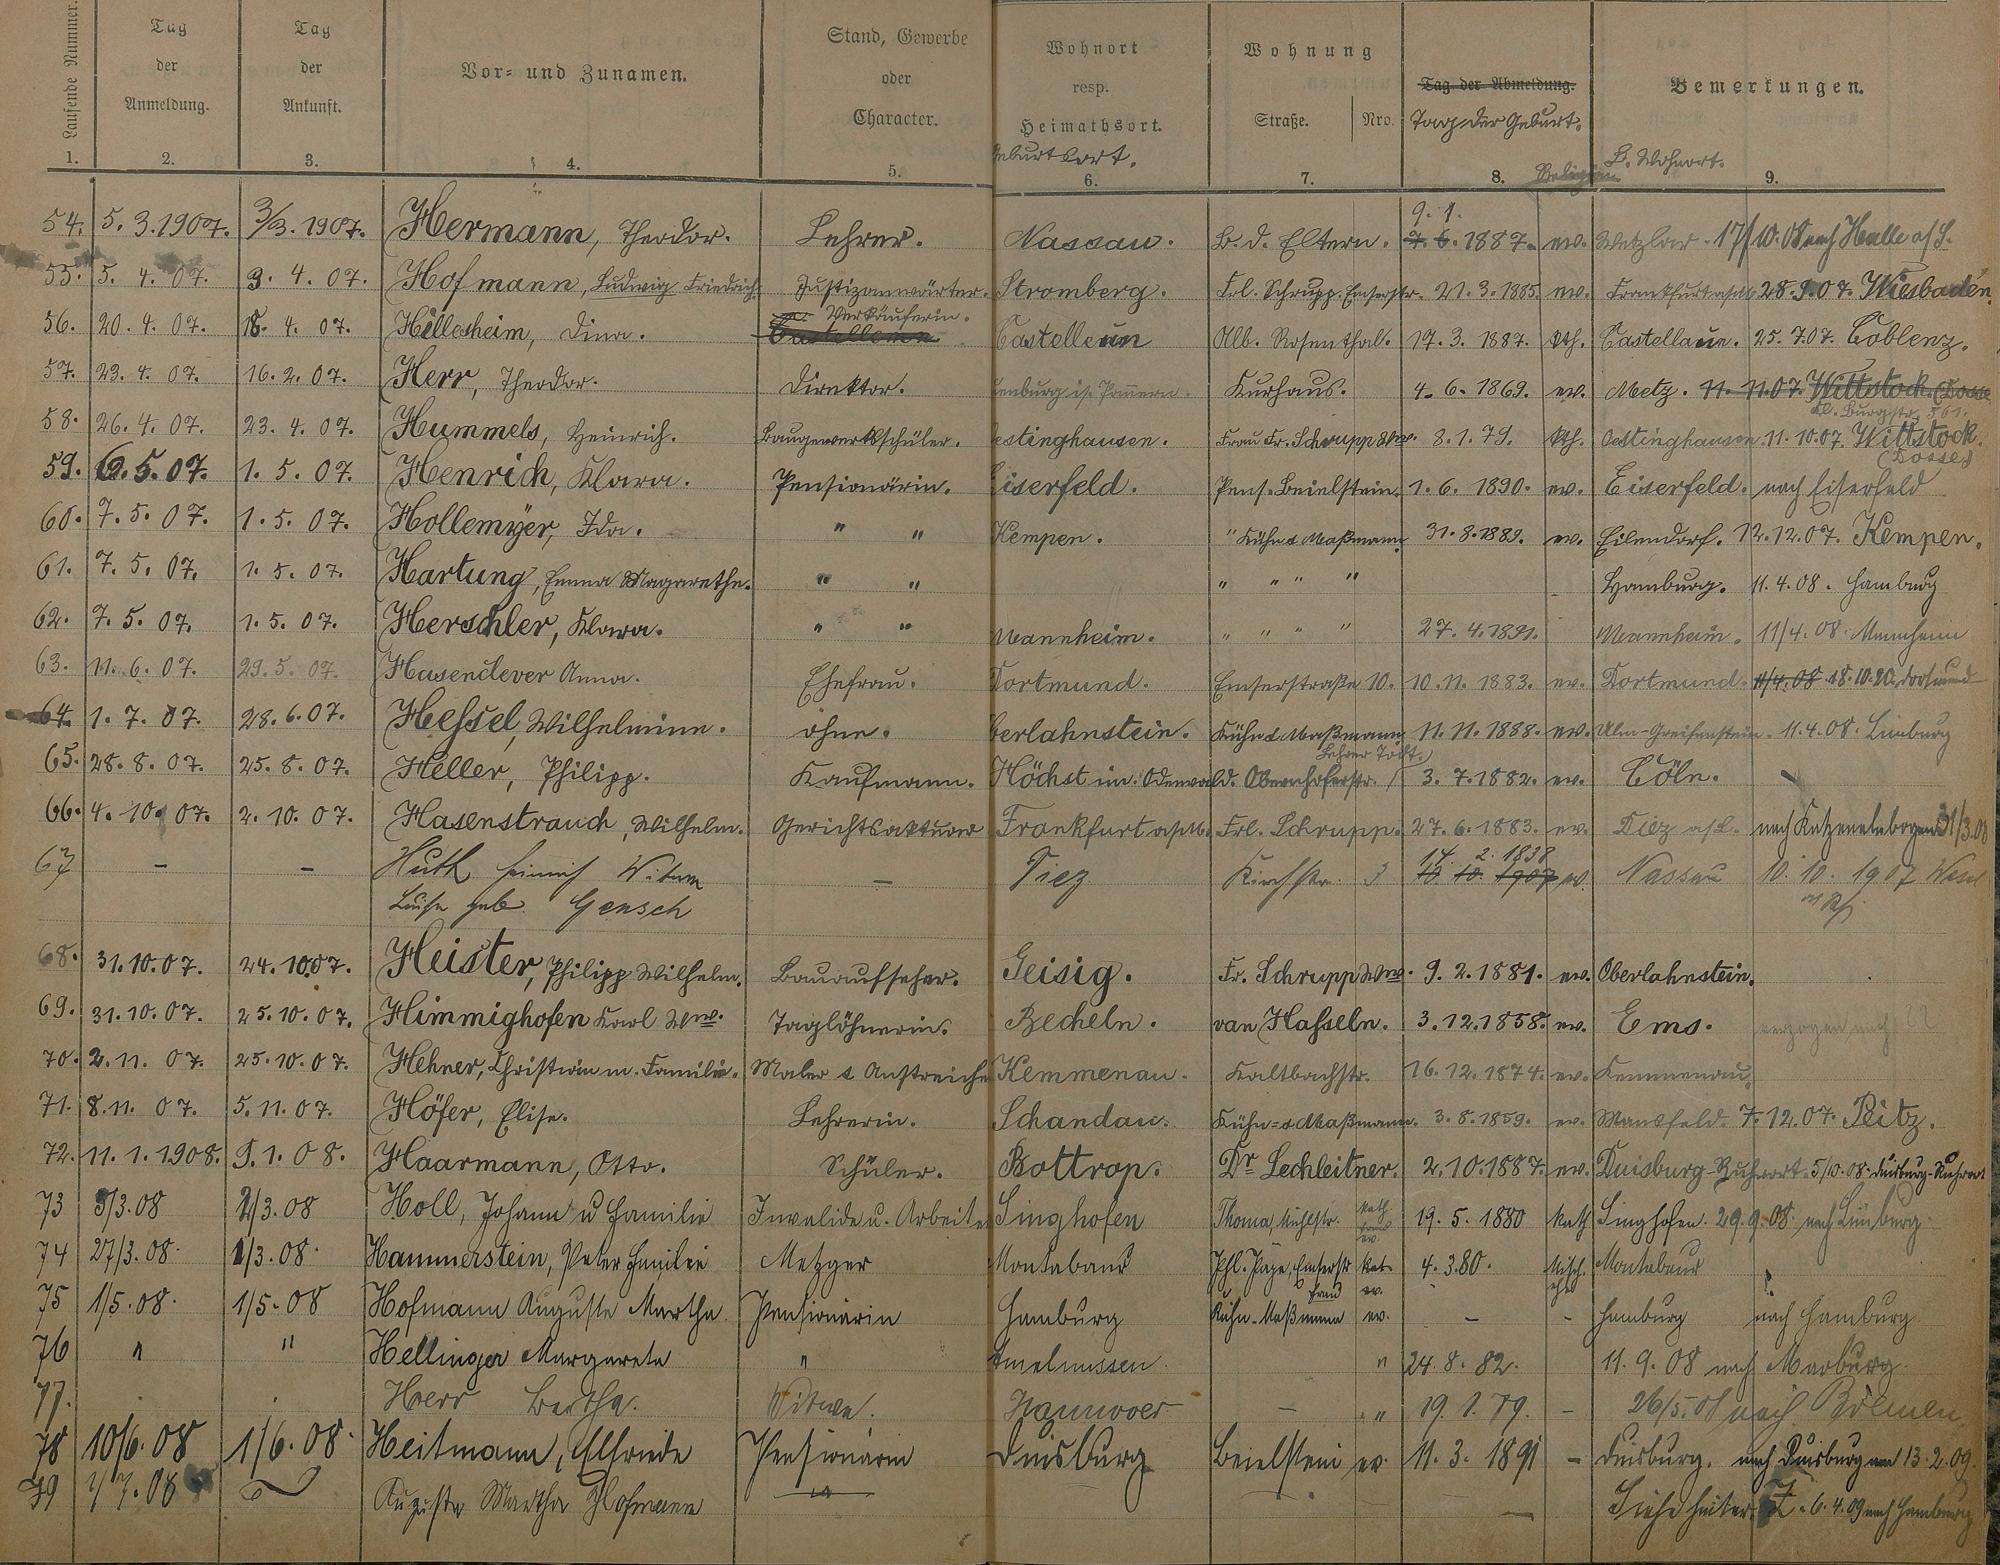 Laufende Nummer. Tag der Anmeldung. Tag der Ankunft. Vor- und Zunamen. Stand, Gewerbe oder Character. Wohnort resp. Heimathsort. Geburtsort. Wohnung Straße. Nro. Tag der Abmeldung. Tag der Geburt. Religion Bemerkungen. B. Wohnort.
1. 2. 3. 4. 5. 6. 7. 8. 9.
54. 5. 3. 1907. 3/3. 1907. Hermann, Theodor. Lehrer. Nassau. B. d. Eltern. 9. 1. 7. 6. 1887. ev. Wetzlar. 17/10.08 nach Halle a/S.
55. 5. 4. 07. 3. 4. 07. Hofmann, Ludwig Friedrich Justizanwärter. Stromberg. Frl. Schrupp. Emserstr. 21. 3. 1885. ev. Frankfurt a/M 28.9.07. Wiesbaden.
56. 20. 4. 07. 18. 4. 07. Hillesheim, Dina. Verkäuferin. Castellaun Alb. Rosenthal. 17. 3. 1887. kth. Castellaun. 25. 7.07. Coblenz.
57. 23. 4. 07. 16. 2. 07. Herr, Theodor. Direktor. enburg i/. Pommern. Kurhaus. 4. 6. 1869. ev. Metz. 11. 11.07. Wittstock. (Dosse
Kl. Burgstr. 561.
58. 26. 4. 07. 23. 4. 07. Hummels, Heinrich. Baugewerksschüler. estinghausen. Frau Fr. Schrupp Ww. 8. 1. 79. kth. Oestinghausen 11. 10.07. Wittstock. (Dosse)
59. 6. 5. 07. 1. 5. 07. Henrich, Klara. Pensionärin. Eiserfeld. Pens. Beielstein. 1. 6. 1890. ev. Eiserfeld. nach Eiserfeld
60. 7. 5. 07. 1. 5. 07. Hollemyer, Ida. " " Kempen. " Kühn & Maßmann. 31. 8. 1889. ev. Eilendorf. 12.12.07. Kempen.
61. 7. 5. 07. 1. 5. 07. Hartung, Emma Magarethe. " " " " " " Hamburg. 11. 4. 08. Hamburg
62. 7. 5. 07. 1. 5. 07. Herschler, Klara. " " Mannheim. " " " " 27. 4. 1891. Mannheim. 11/4. 08. Mannheim
63. 11. 6. 07. 29. 5. 07. Hasenclever Anna. Ehefrau. Dortmund. Emserstraße 10. 10. 11. 1883. ev. Dortmund. 11/4. 08 18. 10. 20. Dortmund
64. 1. 7. 07. 28. 6. 07. Hessel, Wilhelmine. ohne. berlahnstein. Kühn & Maßmann 11. 11. 1888. ev. Ulm-Greifenstein. 11. 4. 08. Limburg
65. 28. 8. 07. 25. 8. 07. Heller, Philipp. Kaufmann. Höchst im Odenwald. Lehrer Obernhoferstr. 3. 7. 1882. ev. Cöln. –
66. 4. 10. 07. 2. 10. 07. Hasenstrauch, Wilhelm. Gerichtsaktuar Frankfurt a/M. Frl. Schrupp. 27. 6. 1883. ev. Diez a/L. nach Katzenelnbogen 31/3.08
67 – – Huth Heinrich Witwe – Diez Kirchstr. 3 14. 2. 1838 10. 10. 1907 ev. Nassau 10. 10. 1907 Wesel
Luise geb. Gensch a/Rh
68. 31. 10. 07. 24. 10.07. Heister, Philipp Wilhelm. Bauaufseher. Geisig. Fr. Schrupp Ww. 9. 2. 1881. ev. Oberlahnstein.
69. 31. 10. 07. 25. 10. 07. Himmighofen Karl Ww. Taglöhnerin. Becheln. van Hasseln. 3. 12. 1858. ev. Ems. verzogen nach
70. 2. 11. 07. 25. 10. 07. Hehner, Christian m. Familie. Maler & Anstreicher Kemmenau. Kaltbachstr. 16. 12. 1874. ev. Kemmenau.
71. 8. 11. 07. 5. 11. 07. Höfer, Elise. Lehrerin. Schandau. Kühn & Maßmann. 3. 8. 1859. ev. Mansfeld. 7. 12. 07. Peitz.
72. 11. 1. 1908. 9. 1. 08. Haarmann, Otto. Schüler. Bottrop. Dr Lechleitner. 2. 10. 1887. ev. Duisburg-Ruhrort. 5/10. 08. Duisburg-Ruhrort
73 3/3.08 2/3.08 Holl, Johann u Familie Invalide u. Arbeiter Singhofen Thoma, Mühlstr. kath. 19. 5. 1880 kath Singhofen. 29.9.08. nach Limburg.
74 27/3.08. 1/3.08. Hammerstein, Peter Familie Metzger Montabaur Phl. Page, Emserstr kat. ev. 4. 3.80. Misch. ehe Montabaur ?
75 1/5.08. 1/5.08 Hofmann Auguste Martha Pensionärin Hamburg Frau Kühn-Maßmann ev. – – Hamburg nach Hamburg
76 " " Hellinger Margareta " Amelunxen. " 24. 8. 82. 11. 9. 08 nach Marburg.
77. Herr Bertha. Witwe. Hannover – " 19. 1. 79. – 26/5.08 nach Bremen
78 10/6. 08 1/6. 08. Heitmann, Elfriede Pensionärin Duisburg Beielstein ev. 11. 3. 1891 – Duisburg. nach Duisburg am 13. 2. 09.
79 1/7. 08 Auguste Martha Hofmann – Siehe hinter Z. 6. 4. 09 nach Hamburg